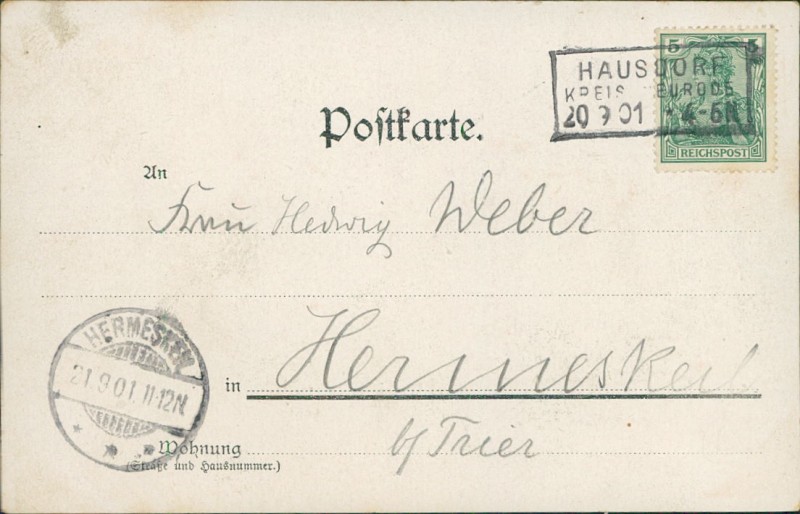 5 5
HAUSDORF
KREIS NEURODE
20 9 01 4-5N
REICHSPOST
Postkarte.
An
Frau Hedwig Weber
HERMESKEIL
21.9.01. 11-12N
in Hermeskeil
b/ Trier
Wohnung
(Straße und Hausnummer.)